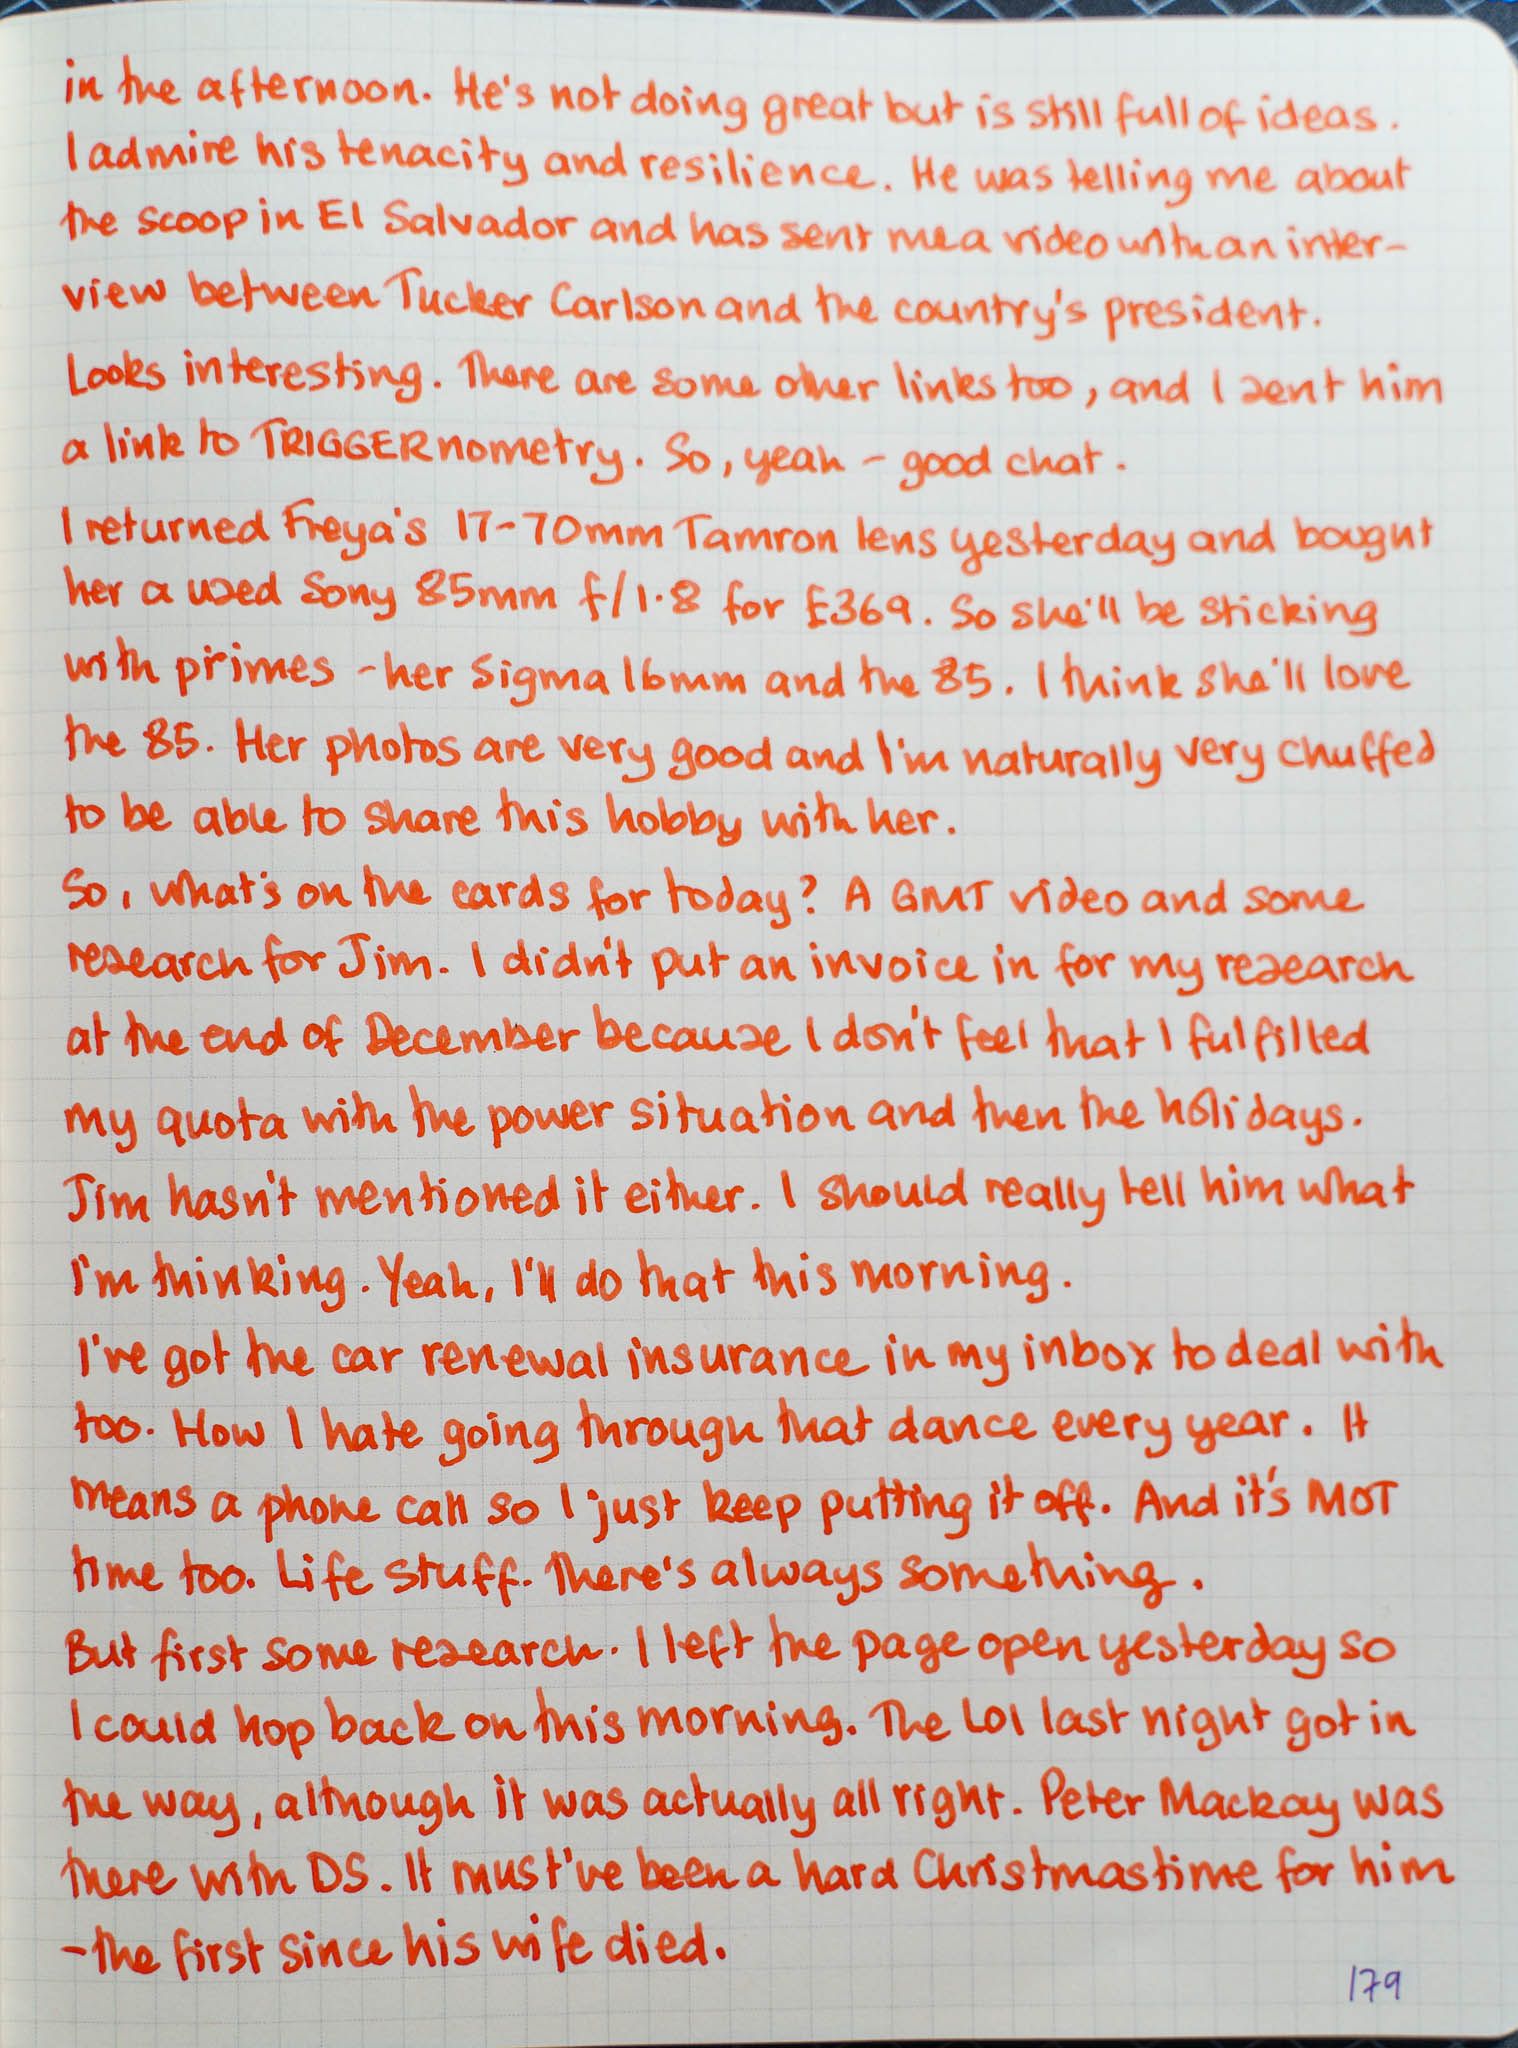 in the afternoon. He's not doing great but is still full of ideas.
I admire his tenacity and resilience. He was telling me about
the scoop in El Salvador and has sent me a video with an inter-
view between Tucker Carlson and the country's president.
Looks interesting. There are some other links too, and I sent him
a link to TRIGGERnometry. So, yeah - good chat.
I returned Freya's 17-70mm Tamron lens yesterday and bought
her a used Sony 85mm f/1.8 for £369. So she'll be sticking
with primes - her Sigma 16mm and the 85. I think she'll love
the 85. Her photos are very good and I'm naturally very chuffed
to be able to share this hobby with her.
So, what's on the cards for today? A GMT video and some
research for Jim. I didn't put an invoice in for my research
at the end of December because I don't feel that I fulfilled
my quota with the power situation and then the holidays.
Jim hasn't mentioned it either. I should really tell him what
I'm thinking. Yeah, I'll do that this morning.
I've got the car renewal insurance in my inbox to deal with
too. How I hate going through that dance every year. It
means a phone call so I just keep putting it off. And it's MOT
time too. Life stuff. There's always something.
But first some research. I left the page open yesterday so
I could hop back on this morning. The LOI last night got in
the way, although it was actually all right. Peter Mackay was
there with DS. It must've been a hard Christmastime for him
- the first since his wife died.
179